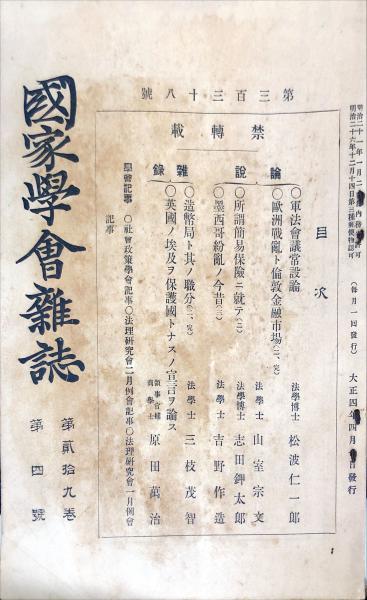 明治二十六年十二月十四日第三種郵便物認可
(每月一回發行)
大正四年四月 日發行
第三百三十八號
禁轉載
目次
論說
○軍法會議常設論
法學博士 松波仁一郎
○歐洲戰亂ト倫敦金融市場(二、完)
法學士 山室宗文
○所謂簡易保險ニ就テ(二)
法學博士 志田鉀太郎
○墨西哥紛亂ノ今昔(三)
法學士 吉野作造
雜錄
○造幣局ト其ノ職分(二、完)
法學士 三枝茂智
○英國ノ埃及ヲ保護國トナスノ宣言ヲ論ス
領事官補
商學士 原田萬治
學會記事 ○社會政策學會記事○法理硏究會二月例會記事○法理硏究會一月例會
記事
國家學會雜誌
第貳拾九卷
第四號